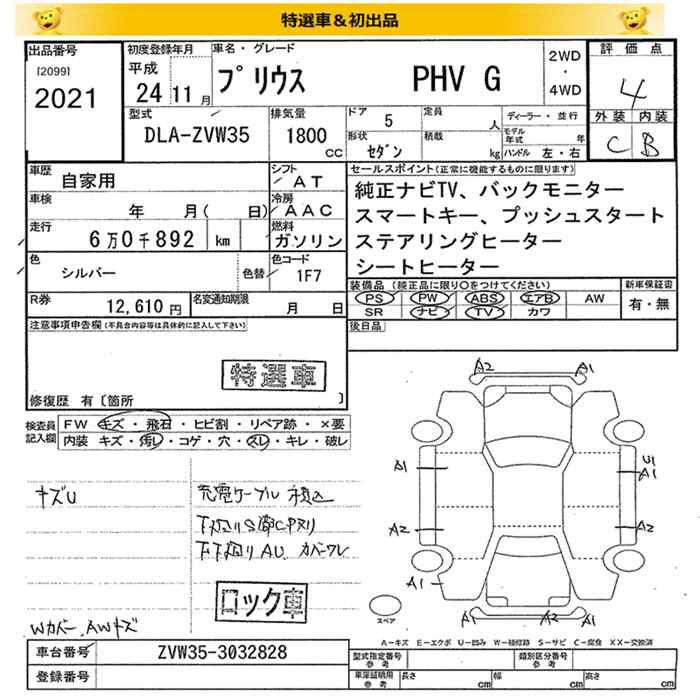 特選車＆初出品
出品番号
[2099]
2021
初度登録年月
平成
24 11 月
車名・グレード
プリウス PHV G
2WD
・
4WD
評価点
4
外装 内装
C B
型式
DLA-ZVW35
排気量
1800
CC
ドア
5
形状
セダン
定員
人
積載
kg
ディーラー・並行
モデル年式 年
ハンドル 左・右
車歴
自家用
シフト
AT
車検
年 月( 日)
冷房
AAC
走行
6万0千892 km
燃料
ガソリン
色
シルバー
色替
色コード
1F7
R券
12,610 円
名変通知期限
月 日
セールスポイント(正常に機能するものに限ります)
純正ナビTV、バックモニター
スマートキー、プッシュスタート
ステアリングヒーター
シートヒーター
装備品 (純正品に限り○をつけてください)
PS PW ABS エアB AW
SR ナビ TV カワ
新車保証書
有・無
後日品
注意事項申告欄(不具合内容等は具体的に記入して下さい)
特選車
修復歴 有〔箇所 〕
検査員
記入欄
FW キズ・飛石・ヒビ割・リペア跡・×要
内装 キズ・汚レ・コゲ・穴・スレ・キレ・破レ
キズU
充電ケーブル積込
下廻りAU カバーワレ
ロック車
Wカバー、AWキズ
A2 A1
A1 U1
A1
A2 A2
A1
A1 A2 A1
スペア
A－キズ E－エクボ U－凹み W－補修跡 S－サビ C－腐食 XX－交換済
車台番号
ZVW35-3032828
登録番号
型式指定番号
参考
類別区分番号
参考
車庫証明用
参考
長さ cm
幅 cm
高さ cm